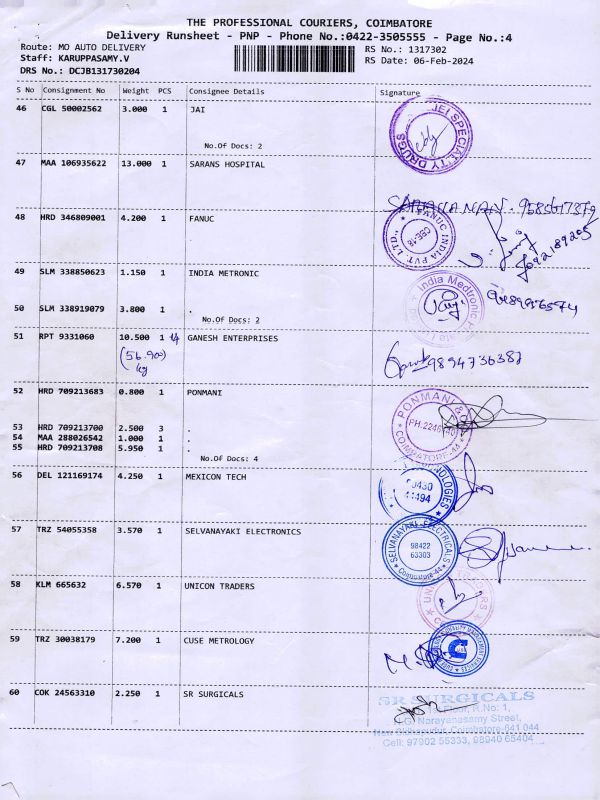 THE PROFESSIONAL COURIERS, COIMBATORE
Delivery Runsheet - PNP - Phone No.:0422-3505555 - Page No.:4
Route: MO AUTO DELIVERY RS No.: 1317302
Staff: KARUPPASAMY.V RS Date: 06-Feb-2024
DRS No.: DCJB131730204
S No Consignment No Weight PCS Consignee Details Signature
46 CGL 50002562 3.000 1 JAI
JEI SPECIALITY DRUGS
No.Of Docs: 2
47 MAA 106935622 13.000 1 SARANS HOSPITAL
SARAVANAN. 9585617379
48 HRD 346809001 4.200 1 FANUC
FANUC INDIA PVT. LTD.,
CBE-18
49 SLM 338850623 1.150 1 INDIA METRONIC
India Medtronic
50 SLM 338919079 3.800 1 .
No.Of Docs: 2
51 RPT 9331060 10.500 1 GANESH ENTERPRISES
(56.900)
kg
9894736387
52 HRD 709213683 0.800 1 PONMANI
PONMANI & CO
PH:2246
COIMBATORE-44
53 HRD 709213700 2.500 3 .
54 MAA 288026542 1.000 1 .
55 HRD 709213708 5.950 1 .
No.Of Docs: 4
56 DEL 121169174 4.250 1 MEXICON TECH
57 TRZ 54055358 3.570 1 SELVANAYAKI ELECTRONICS
SELVANAYAKI ELECTRICALS
98422
63303
Coimbatore-44
58 KLM 665632 6.570 1 UNICON TRADERS
59 TRZ 30038179 7.200 1 CUSE METROLOGY
60 COK 24563310 2.250 1 SR SURGICALS
SR SURGICALS
Floor, R.No: 1,
Narayanasamy Street,
Coimbatore-641 044
Cell: 97902 55333, 98940 65404